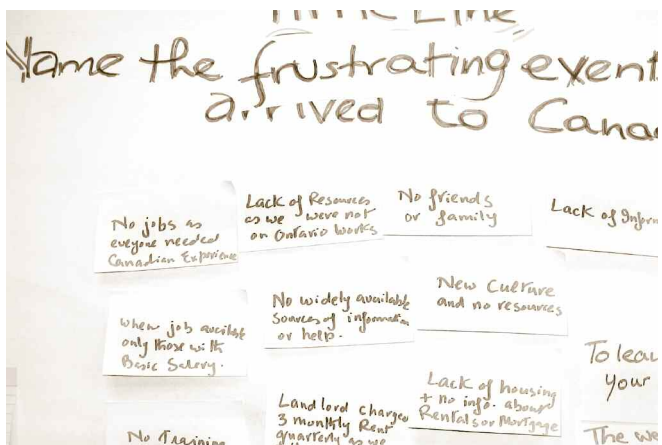 Time Line
Name the frustrating event
arrived to Cana
No jobs as
eveyone needed
Canadian Experience
Lack of Resources
as we were not
on Ontario Works
No friends
or family
Lack of Inform
when job available
only those with
Basic Salery.
No widely available
sources of information
or help.
New Culture
and no resources
To leav
your
No Training
Landlord charges
3 monthly Rent
quarterly as we
Lack of housing
+ no info. about
Rentals or Mortgage
The we